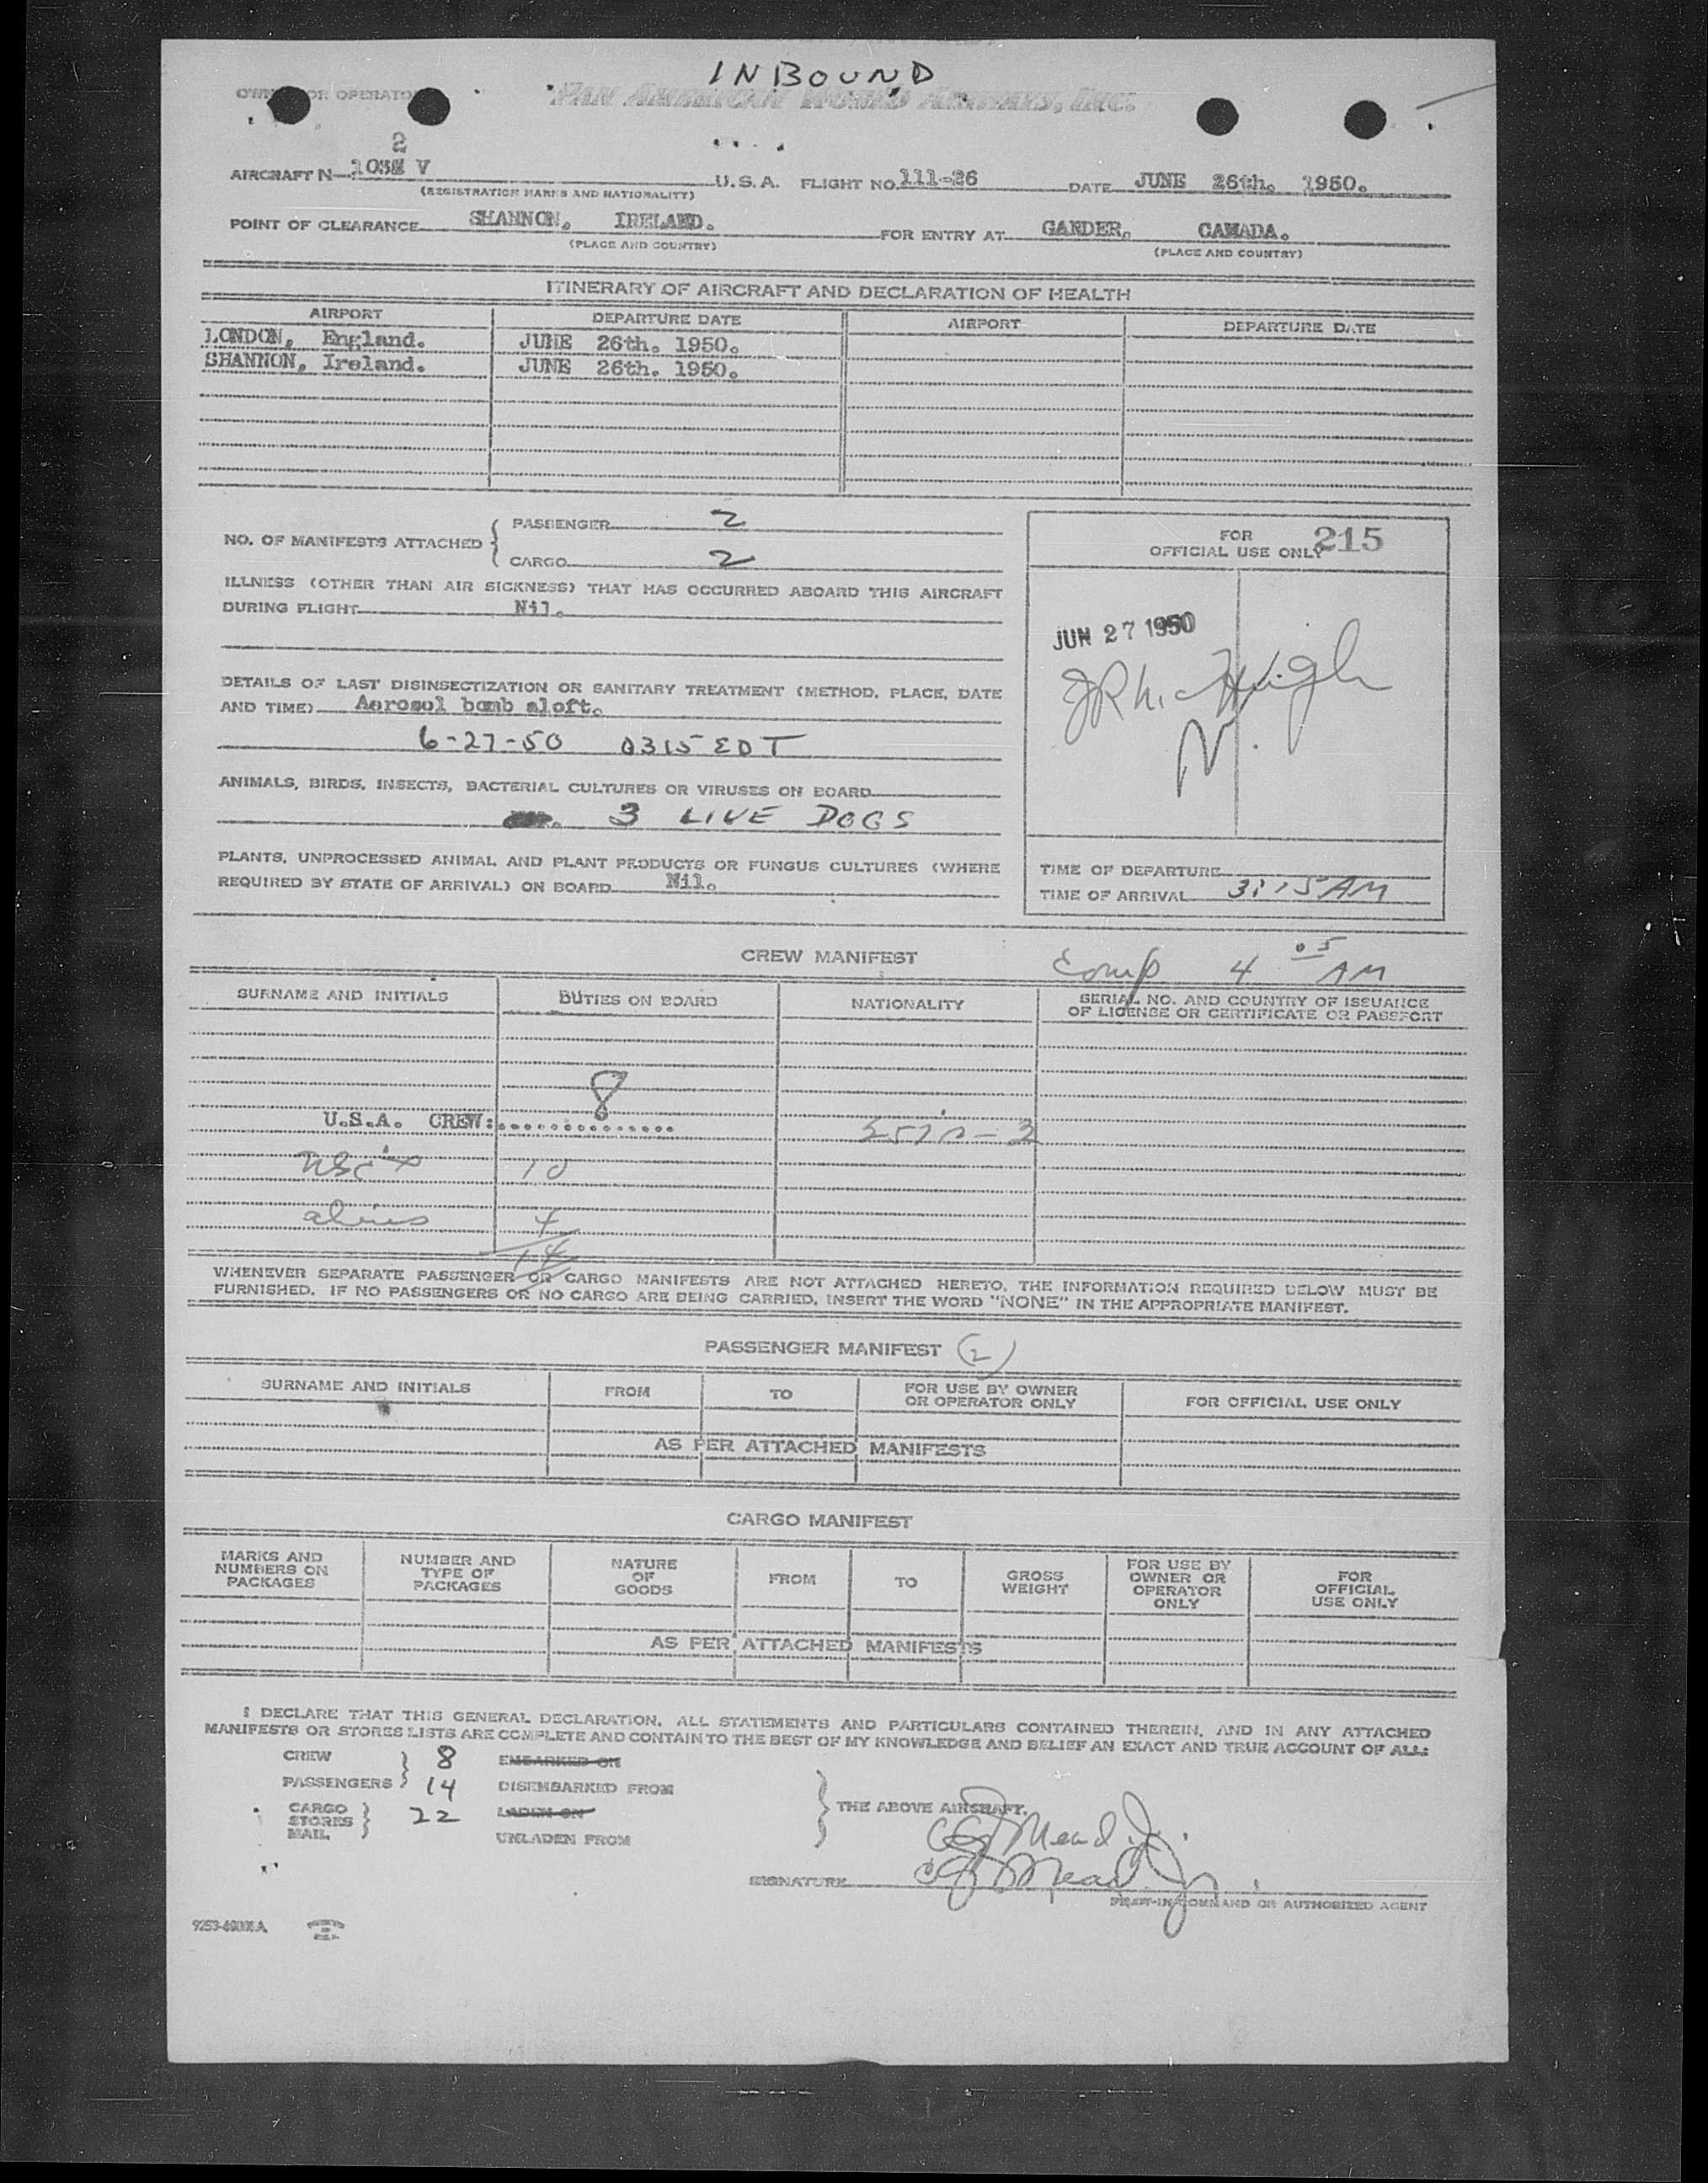 INBOUND
OWNER OR OPERATOR PAN AMERICAN WORLD AIRWAYS, INC.
2
AIRCRAFT N- V U.S.A. FLIGHT NO. 111-26 DATE JUNE 26th. 1950.
(REGISTRATION MARKS AND NATIONALITY)
POINT OF CLEARANCE SHANNON, IRELAND. FOR ENTRY AT GANDER, CANADA.
(PLACE AND COUNTRY) (PLACE AND COUNTRY)
ITINERARY OF AIRCRAFT AND DECLARATION OF HEALTH
AIRPORT DEPARTURE DATE AIRPORT DEPARTURE DATE
LONDON, England. JUNE 26th. 1950.
SHANNON, Ireland. JUNE 26th. 1950.
NO. OF MANIFESTS ATTACHED { PASSENGER 2
CARGO 2
FOR OFFICIAL USE ONLY 215
ILLNESS (OTHER THAN AIR SICKNESS) THAT HAS OCCURRED ABOARD THIS AIRCRAFT
DURING FLIGHT Nil.
JUN 27 1950
DETAILS OF LAST DISINSECTIZATION OR SANITARY TREATMENT (METHOD, PLACE, DATE
AND TIME) Aerosol bomb aloft.
6-27-50 0315 EDT
ANIMALS, BIRDS, INSECTS, BACTERIAL CULTURES OR VIRUSES ON BOARD
3 LIVE DOGS
PLANTS, UNPROCESSED ANIMAL AND PLANT PRODUCTS OR FUNGUS CULTURES (WHERE
REQUIRED BY STATE OF ARRIVAL) ON BOARD Nil.
TIME OF DEPARTURE
TIME OF ARRIVAL 3:15 AM
CREW MANIFEST
Comp 4 05 AM
SURNAME AND INITIALS DUTIES ON BOARD NATIONALITY SERIAL NO. AND COUNTRY OF ISSUANCE
OF LICENSE OR CERTIFICATE OR PASSPORT
8
U.S.A. CREW:...............
10
aliens 4
14
WHENEVER SEPARATE PASSENGER OR CARGO MANIFESTS ARE NOT ATTACHED HERETO, THE INFORMATION REQUIRED BELOW MUST BE
FURNISHED. IF NO PASSENGERS OR NO CARGO ARE BEING CARRIED, INSERT THE WORD "NONE" IN THE APPROPRIATE MANIFEST.
PASSENGER MANIFEST (2)
SURNAME AND INITIALS FROM TO FOR USE BY OWNER
OR OPERATOR ONLY FOR OFFICIAL USE ONLY
AS PER ATTACHED MANIFESTS
CARGO MANIFEST
MARKS AND
NUMBERS ON
PACKAGES NUMBER AND
TYPE OF
PACKAGES NATURE
OF
GOODS FROM TO GROSS
WEIGHT FOR USE BY
OWNER OR
OPERATOR
ONLY FOR
OFFICIAL
USE ONLY
AS PER ATTACHED MANIFESTS
I DECLARE THAT THIS GENERAL DECLARATION, ALL STATEMENTS AND PARTICULARS CONTAINED THEREIN, AND IN ANY ATTACHED
MANIFESTS OR STORES LISTS ARE COMPLETE AND CONTAIN TO THE BEST OF MY KNOWLEDGE AND BELIEF AN EXACT AND TRUE ACCOUNT OF ALL:
CREW 8 EMBARKED ON
PASSENGERS 14 DISEMBARKED FROM
CARGO
STORES
MAIL 22 LADEN ON
UNLADEN FROM
THE ABOVE AIRCRAFT.
Mead Jr.
SIGNATURE Mead Jr.
PILOT-IN-COMMAND OR AUTHORIZED AGENT